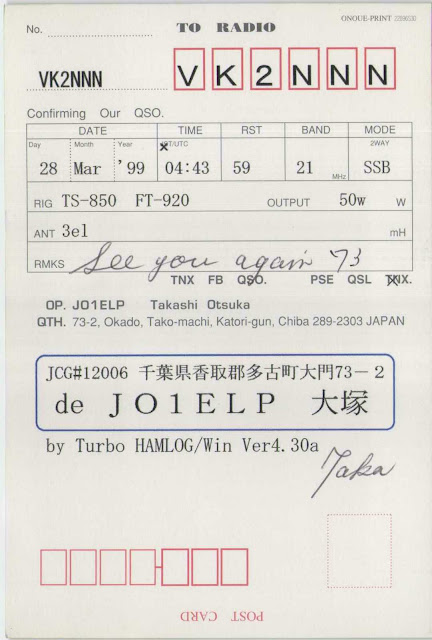 ONOUE-PRINT
TO RADIO
No.
VK2NNN VK2NNN
Confirming Our QSO.
DATE TIME RST BAND MODE
Day Month Year JST/UTC 2WAY
28 Mar '99 04:43 59 21 MHz SSB
RIG TS-850 FT-920 OUTPUT 50w W
ANT 3el mH
RMKS See you again '73
TNX FB QSO. PSE QSL TNX.
OP. JO1ELP Takashi Otsuka
QTH. 73-2, Okado, Tako-machi, Katori-gun, Chiba 289-2303 JAPAN
JCG#12006 千葉県香取郡多古町大門73－2
de JO1ELP 大塚
by Turbo HAMLOG/Win Ver4.30a
Taka
POST CARD